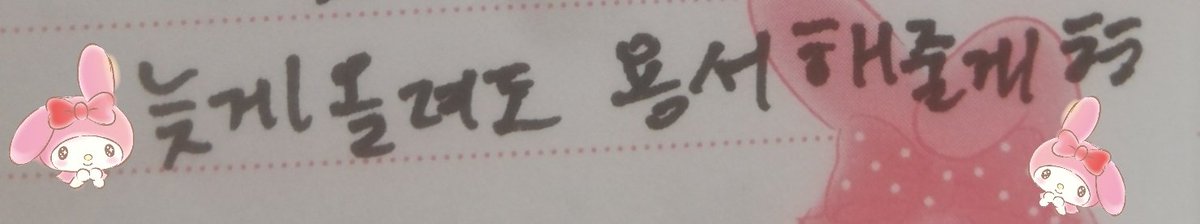 늦게올려도 용서해줄게 헉